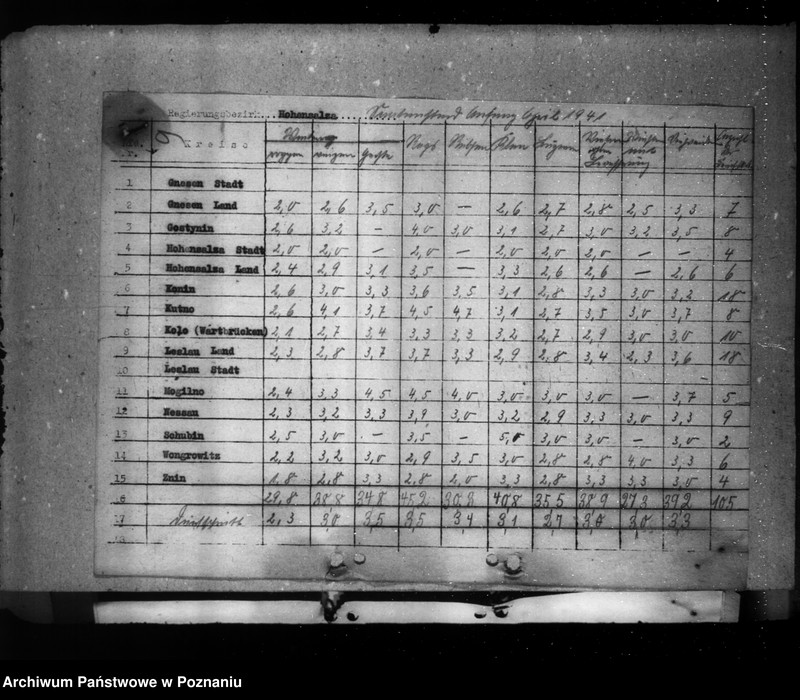 Regierungsbezirk Hohensalza Anfang April 1941
Kreise
roggen weizen Gerste Raps Klee Luzerne
1 Gnesen Stadt
2 Gnesen Land 2,0 2,6 3,5 3,0 — 2,6 2,7 2,8 2,5 3,3 7
3 Gostynin 2,6 3,2 — 4,0 3,0 3,1 2,7 3,0 3,2 3,5 8
4 Hohensalza Stadt 2,0 2,0 — 2,0 — 2,0 2,0 2,0 — — 4
5 Hohensalza Land 2,4 2,9 3,1 3,5 — 3,3 2,6 2,6 — 2,6 6
6 Konin 2,6 3,0 3,3 3,6 3,5 3,1 2,8 3,3 3,0 3,3 18
7 Kutno 2,6 4,1 3,7 4,5 4,7 3,1 2,7 3,5 3,0 3,7 8
8 Kolo (Wartbrücken) 2,1 2,7 3,4 3,3 3,3 3,2 2,7 2,9 3,0 3,0 10
9 Leslau Land 2,3 2,8 3,7 3,7 3,3 2,9 2,8 3,4 2,3 3,6 18
10 Leslau Stadt
11 Mogilno 2,4 3,3 4,5 4,5 4,0 3,0 3,0 3,0 — 3,7 5
12 Nessau 2,3 3,2 3,3 3,9 3,0 3,2 2,9 3,3 3,0 3,3 9
13 Schubin 2,5 3,0 — 3,5 — 5,0 3,0 3,0 — 3,0 2
14 Wongrowitz 2,2 3,2 3,0 2,9 3,5 3,0 2,8 2,8 4,0 3,3 6
15 Znin 1,8 2,8 3,3 2,8 2,0 3,3 2,8 3,3 3,3 3,0 4
16 29,8 38,8 34,8 45,2 30,3 40,8 35,5 38,9 27,3 39,2 105
17 Durchschnitt 2,3 3,0 3,5 3,5 3,4 3,1 2,7 3,0 3,0 3,3
18
Archiwum Państwowe w Poznaniu